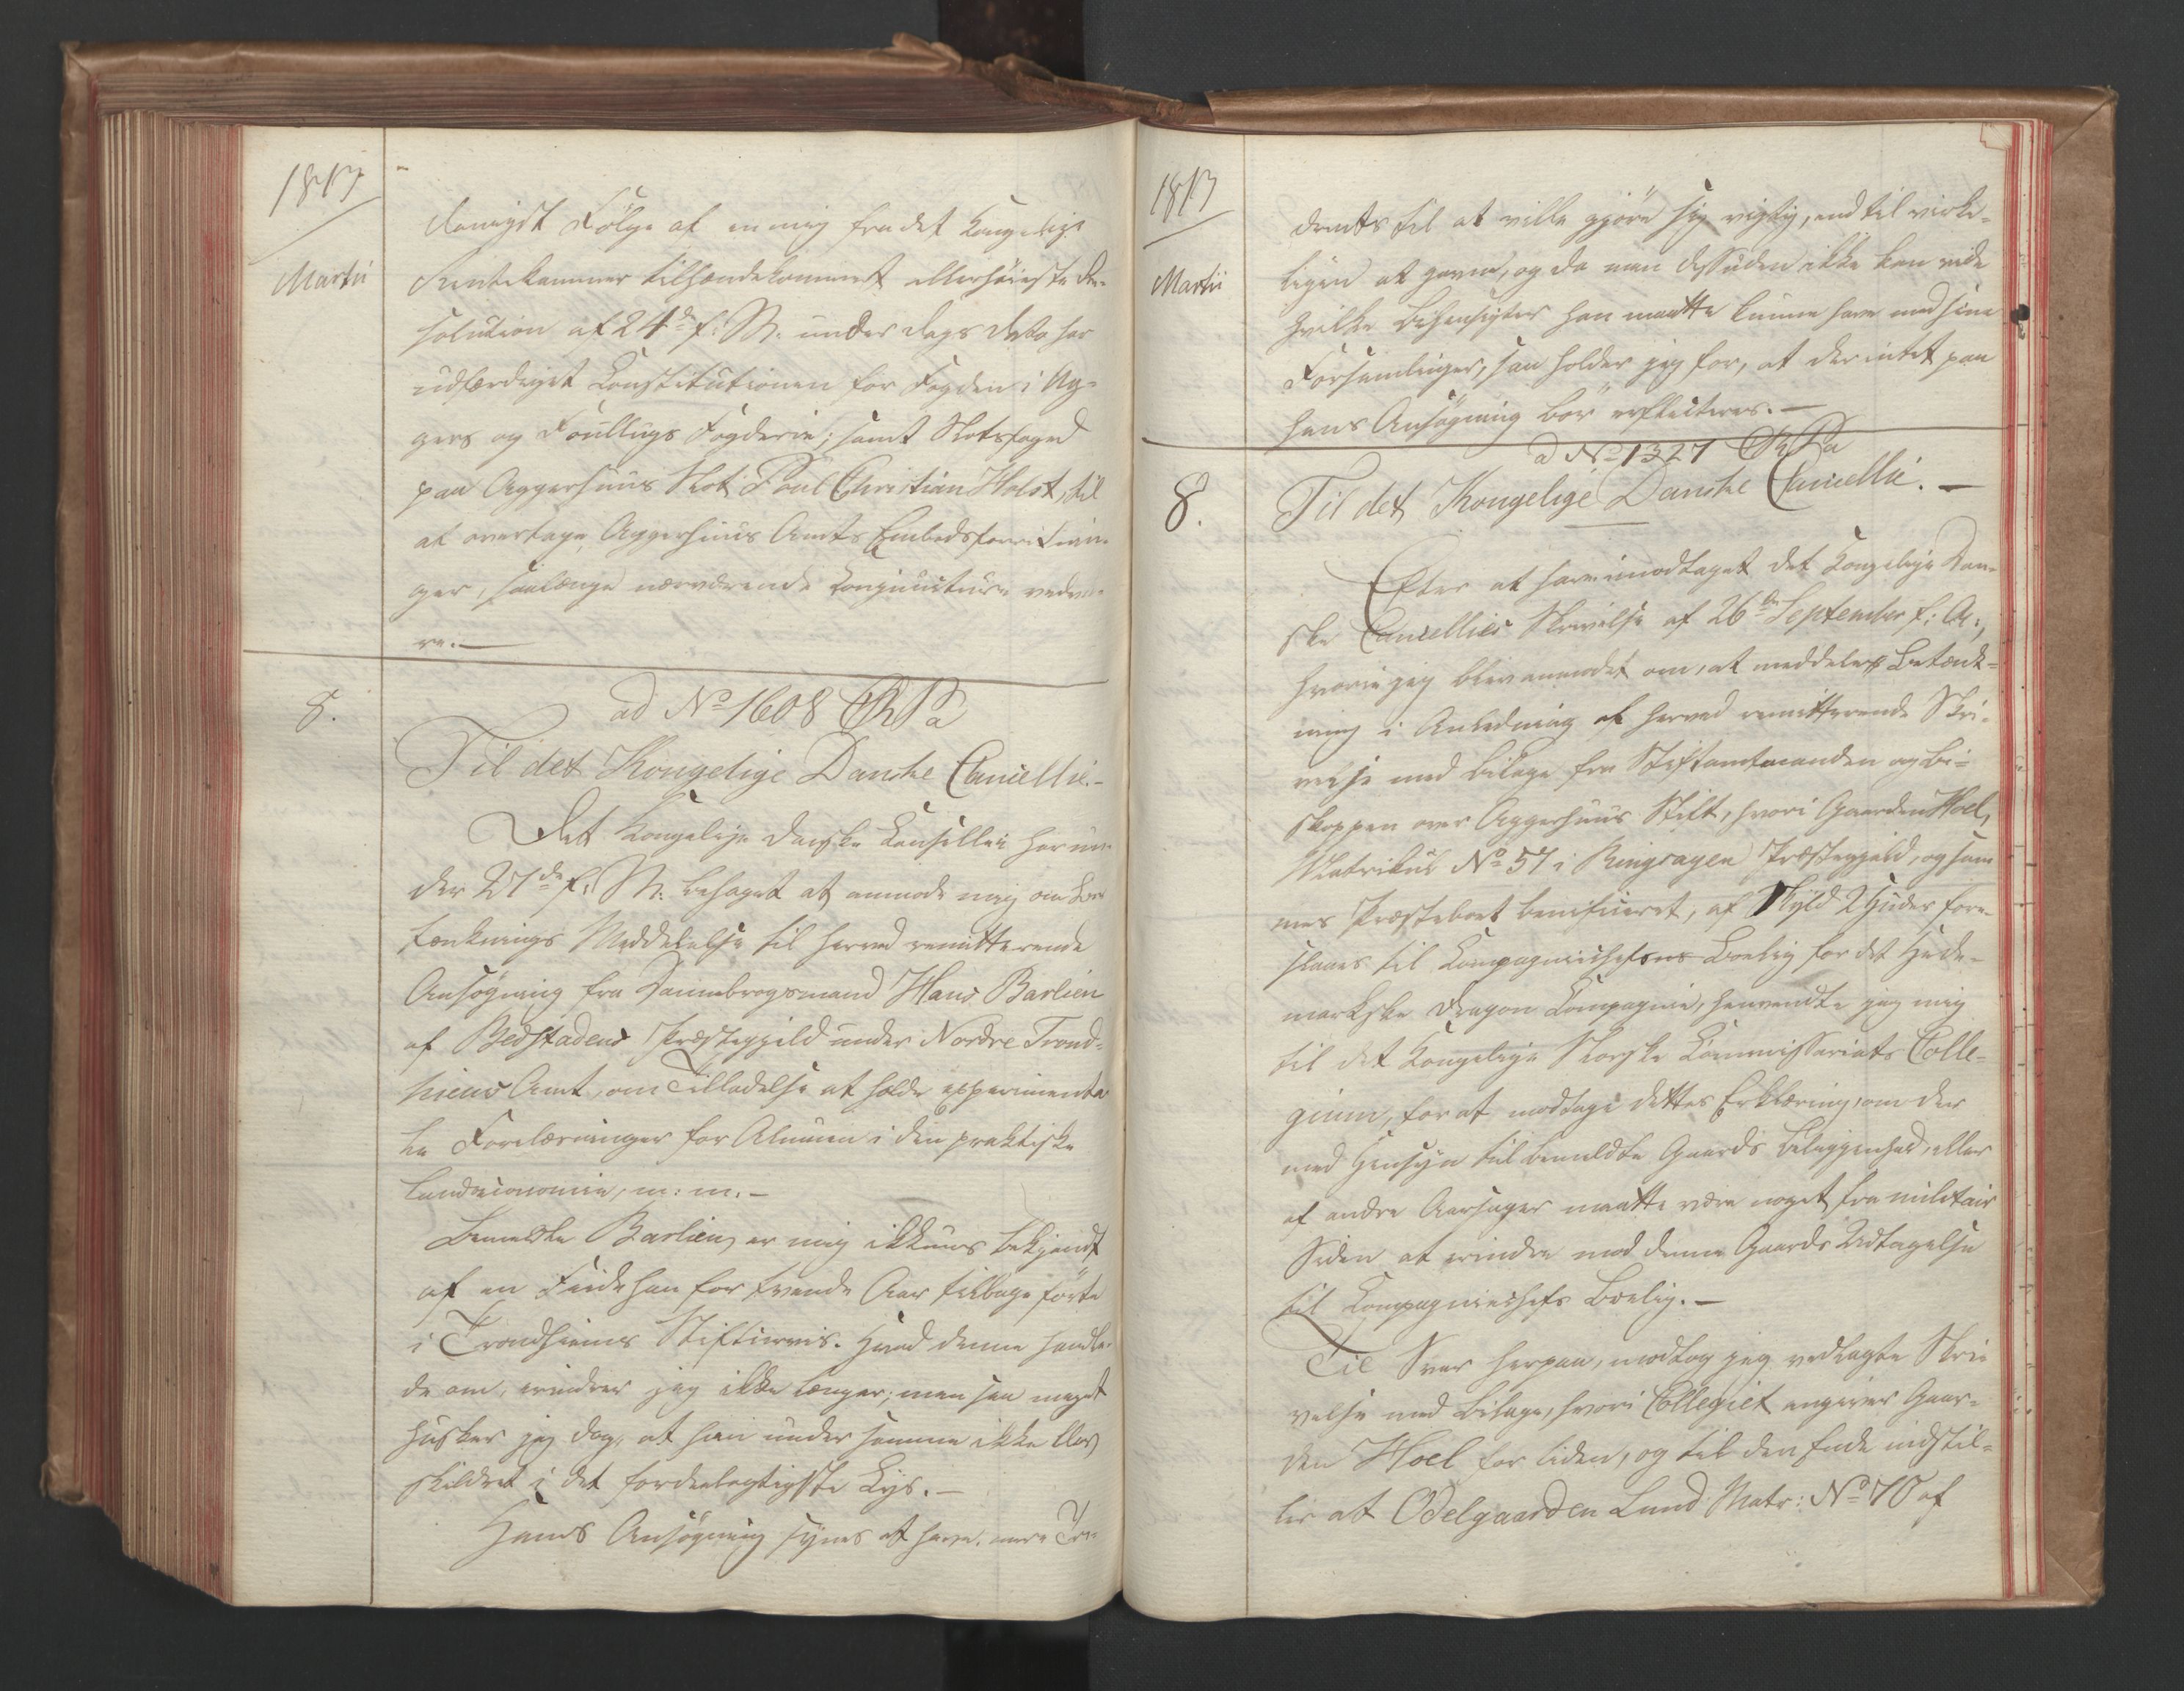 1813
Martii
Rentekammer tilhændekommet allerhöieste Re-
solution af 24de f: M: under Dags Dato har
udfærdiget Constitutionen for Fogden i Ag-
gers og Foullugs Fogderie, samt Slotsfoged
paa Aggershuus Slot Poul Christian Holst, til
at overtage Aggershuus Amts Embedsforretnin-
ger, saalænge nærværende Conjuncturer vedva-
re.—
8.
ad No 1608 
Til det Kongelige Danske Cancellie.-
Det Kongelige Danske Cancellie har un-
der 27de f: M: behaget at anmode mig om Be-
tænknings Meddelelse til herved remitterende
Ansögning fra Dannebrogsmand Hans Barlien
af Bedstadens Præstegjeld under Nordre Trond-
hiems Amt, om Tilladelse at holde experimenta-
le Forelæsninger for Almuen i den praktiske
Landoeconomie, m: m.-
Bemeldte Barlien er mig ikkuns bekjendt
af en Feide han for tvende Aar tilbage förte
i Trondhiems Stiftsavis. Hvad denne handle-
de om, erindrer jeg ikke længer; men saa meget
husker jeg dog, at han under samme ikke blev
skildret i det fordeelagtigste Lys.—
Hans Ansögning synes at have mere Ten-
1813
Martii
dents til at ville gjöre sig vigtig, end til virke-
ligen at gavne, og da man desuden ikke kan vide
hvilke Bihensigter han maatte kunne have med sine
Forsamlinger, saa holder jeg for, at der intet paa
hans Ansögning bör reflecteres.—
ad No 1327 
8.
Til det Kongelige Danske Cancellie.—
Efter at have imodtaget det Kongelige Dan-
ske Cancellies Skrivelse af 26de September f: A:,
hvori jeg blev anmodet om, at meddele Betænk-
ning i Anledning af herved remitterende Skri-
velse med Bilage fra Stiftamtmanden og Bi-
skoppen over Aggershuus Stift, hvori Gaarden Hoel,
Matrikul No 57 i Ringsagers Præstegjeld, og sam-
mes Præstebord benificeret, af Skyld 2 Huder fore-
slaaes til Compagniechefens Boelig for det Hede-
markske Dragon Compagnie, henvendte jeg mig
til det Kongelige Norske Commissariats Colle-
gium, for at modtage dettes Erklæring, om der
med Hensyn til bemeldte Gaards Beliggenhed, eller
af andre Aarsager maatte være noget fra militair
Siden at erindre mod denne Gaards Udtagelse
til Compagniechefs Boelig.—
Til Svar herpaa, modtog jeg vedlagte Skri-
velse med Bilage, hvori Collegiet angiver Gaar-
den Hoel for liden, og til den Ende indstil-
ler at Odelgaarden Lund Matr: No 70 af